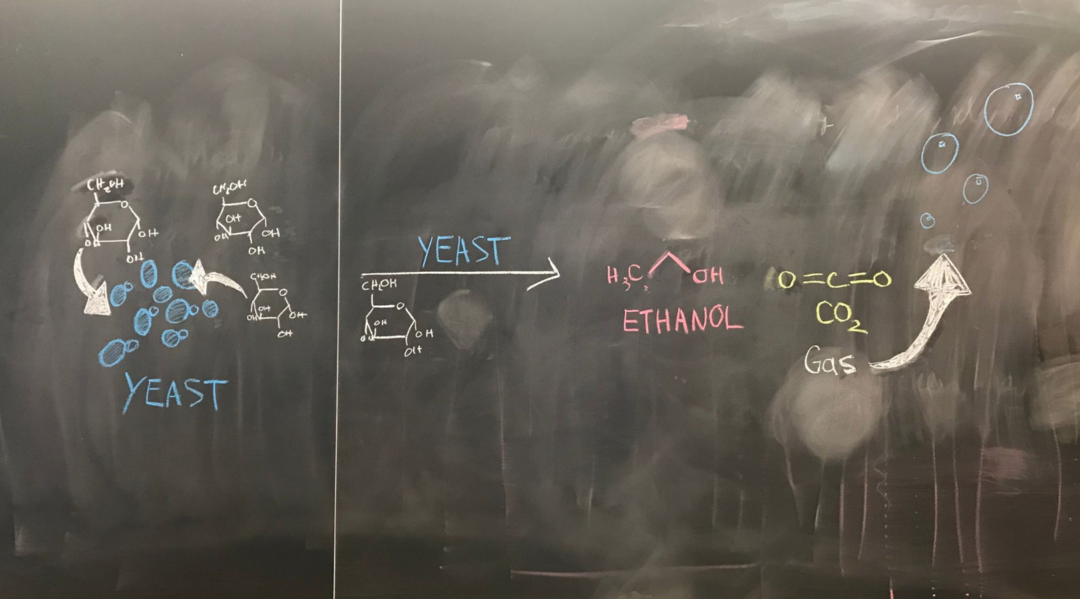 CH₂OH
O
OH
OH
OH
OH
CH₂OH
O
OH
OH
OH
OH
CH₂OH
O
OH
OH
OH
OH
YEAST
YEAST
CH₂OH
O
OH
OH
OH
OH
H₃C
OH
ETHANOL
O=C=O
CO₂
Gas